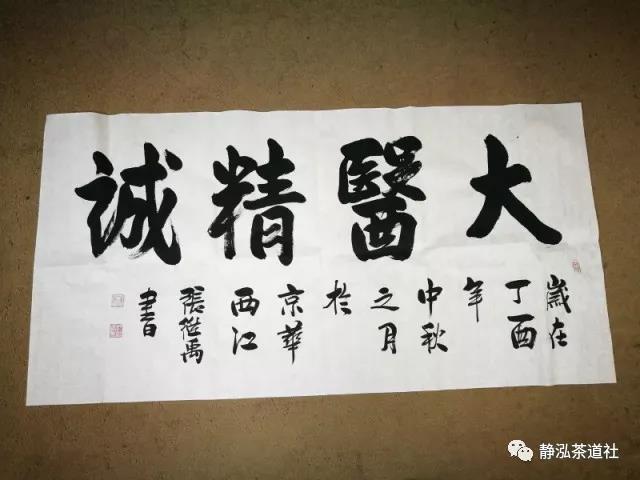 大醫精誠
歲在
丁酉
年
中秋
之月
於
京華
西江
張繼禹
書
静泓茶道社